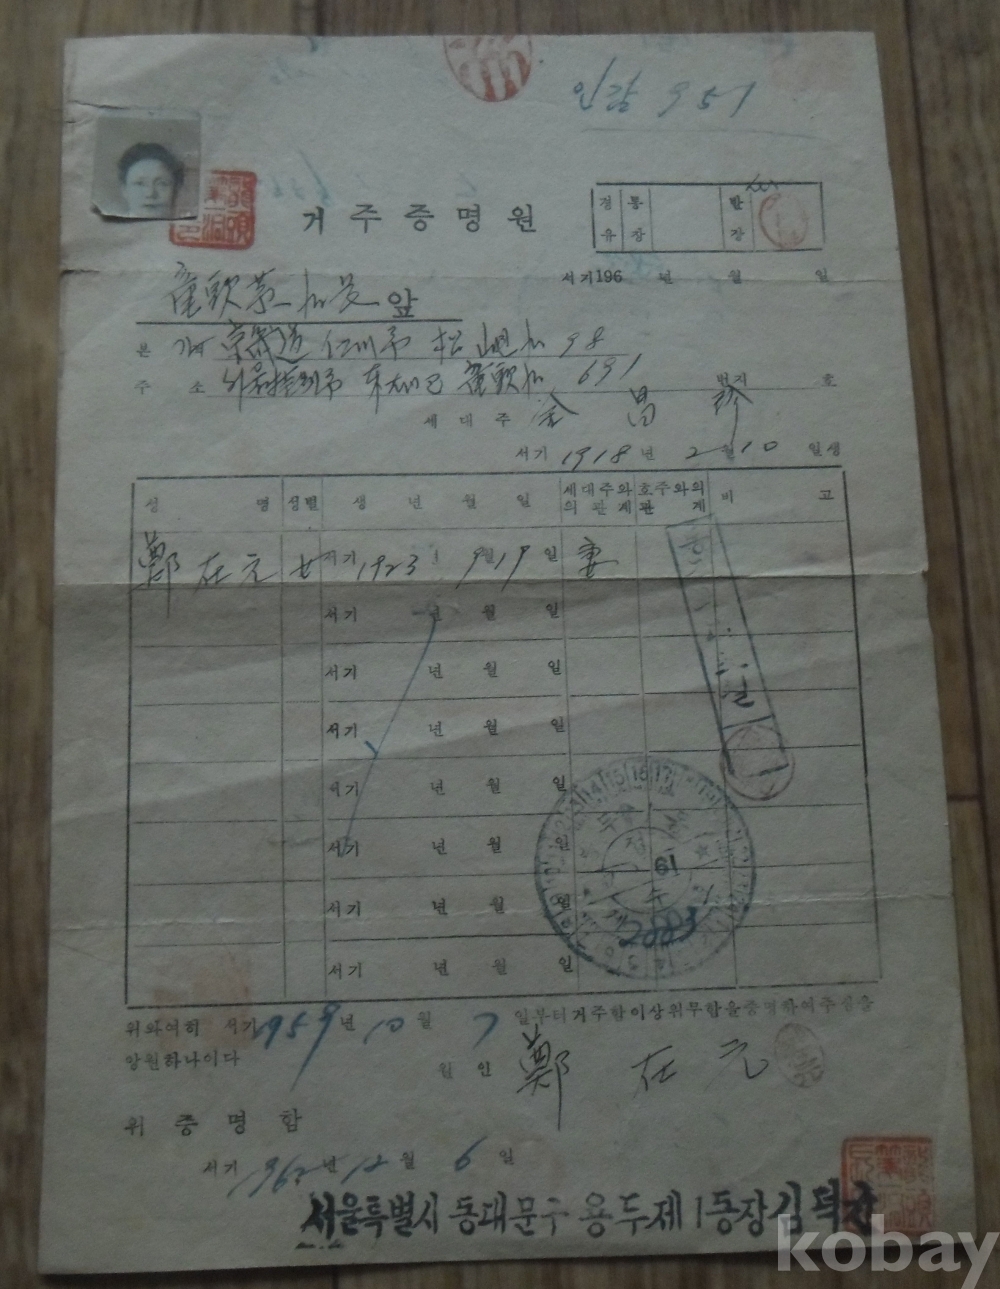 인감 951
거주증명원
경유 통장 반장
서기196 년 월 일
龍頭第一洞長 앞
본 적 京畿道 仁川市 松峴洞 98
주 소 서울特別市 東大門區 龍頭洞 691 번지 호
세대주 金昌
서기 1918년 2월 10일생
성 명 성별 생 년 월 일 세대주와의 관계 호주와의 관계 비 고
鄭在元 女 서기 1923년 9월 19일 妻
서기 년 월 일
서기 년 월 일
서기 년 월 일
서기 년 월 일
서기 년 월 일
서기 년 월 일
서기 년 월 일
61
2883
위와여히 서기 1959년 10월 7일부터 거주함이상위무함을증명하여주심을
앙원하나이다
원인 鄭在元
위 증명함
서기 1962년 12월 6일
서울특별시 동대문구 용두제1동장 김덕
kobay